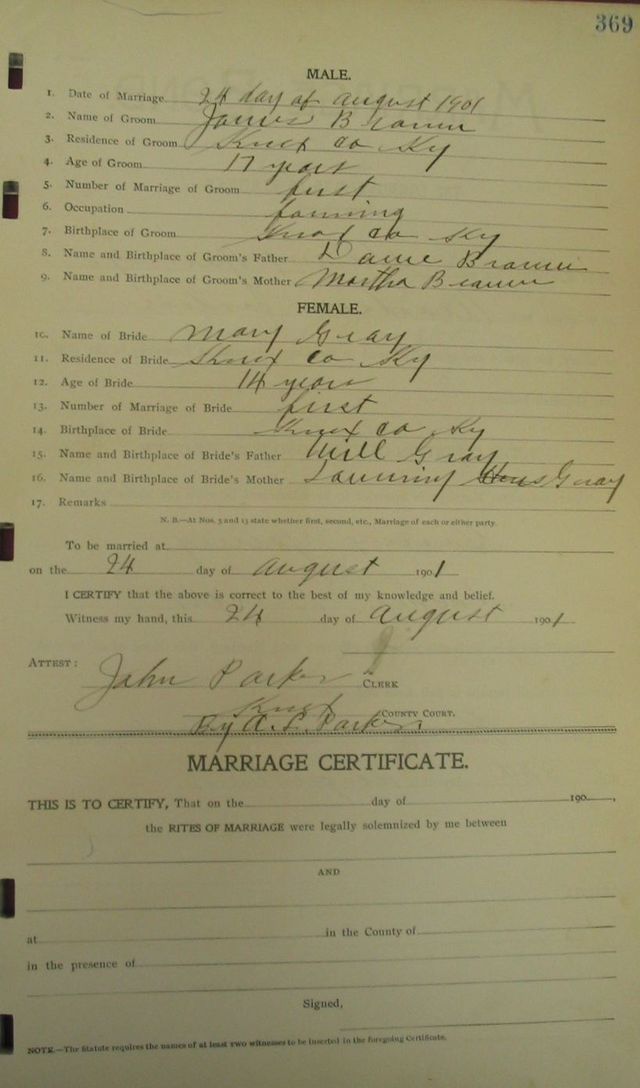 369
MALE.
1. Date of Marriage 24 day of august 1901
2. Name of Groom James Brown
3. Residence of Groom Knox co Ky
4. Age of Groom 17 years
5. Number of Marriage of Groom first
6. Occupation farming
7. Birthplace of Groom Knox co Ky
8. Name and Birthplace of Groom's Father Brown
9. Name and Birthplace of Groom's Mother Martha Brown
FEMALE.
10. Name of Bride Mary Gray
11. Residence of Bride Knox co Ky
12. Age of Bride 14 years
13. Number of Marriage of Bride first
14. Birthplace of Bride Knox co Ky
15. Name and Birthplace of Bride's Father Will Gray
16. Name and Birthplace of Bride's Mother Gray
17. Remarks
N. B.—At Nos. 5 and 13 state whether first, second, etc., Marriage of each or either party.
To be married at
on the 24 day of august 1901
I CERTIFY that the above is correct to the best of my knowledge and belief.
Witness my hand, this 24 day of august 1901
ATTEST: John Parker CLERK
Knox COUNTY COURT.
By A. L. Parker
MARRIAGE CERTIFICATE.
THIS IS TO CERTIFY, That on the day of 190 ,
the RITES OF MARRIAGE were legally solemnized by me between
AND
at in the County of
in the presence of
Signed,
NOTE.—The Statute requires the names of at least two witnesses to be inserted in the foregoing Certificate.